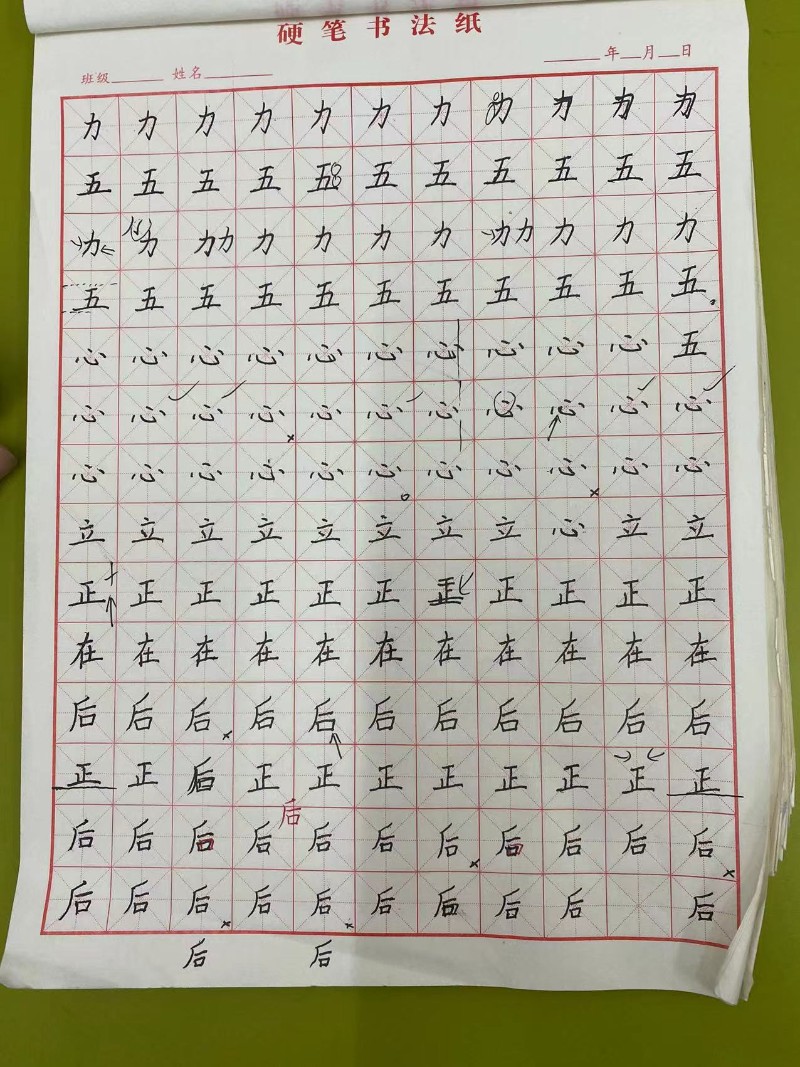 硬笔书法纸
班级 姓名 年 月 日
力 力 力 力 力 力 力 力 力 力 力
五 五 五 五 五 五 五 五 五 五 五
力 力 力力 力 力 力 力 力力 力 力 力
五 五 五 五 五 五 五 五 五 五 五
心 心 心 心 心 心 心 心 心 心 五
心 心 心 心 心 心 心 心 心 心 心
心 心 心 心 心 心 心 心 心 心 心
立 立 立 立 立 立 立 立 心 立 立
正 正 正 正 正 正 正 正 正 正 正
在 在 在 在 在 在 在 在 在 在 在
后 后 后 后 后 后 后 后 后 后 后
正 正 后 正 正 正 正 正 正 正 正
后
后 后 后 后 后 后 后 后 后 后 后
后 后 后 后 后 后 后 后 后 后
后 后